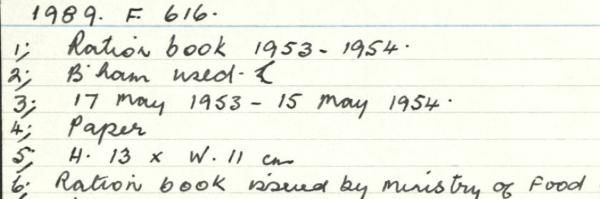 1989. F 616.
1; Ration book 1953-1954.
2; B'ham used.
3; 17 May 1953 - 15 May 1954.
4; Paper
5; H. 13 x W. 11 cm
6; Ration book issued by Ministry of Food